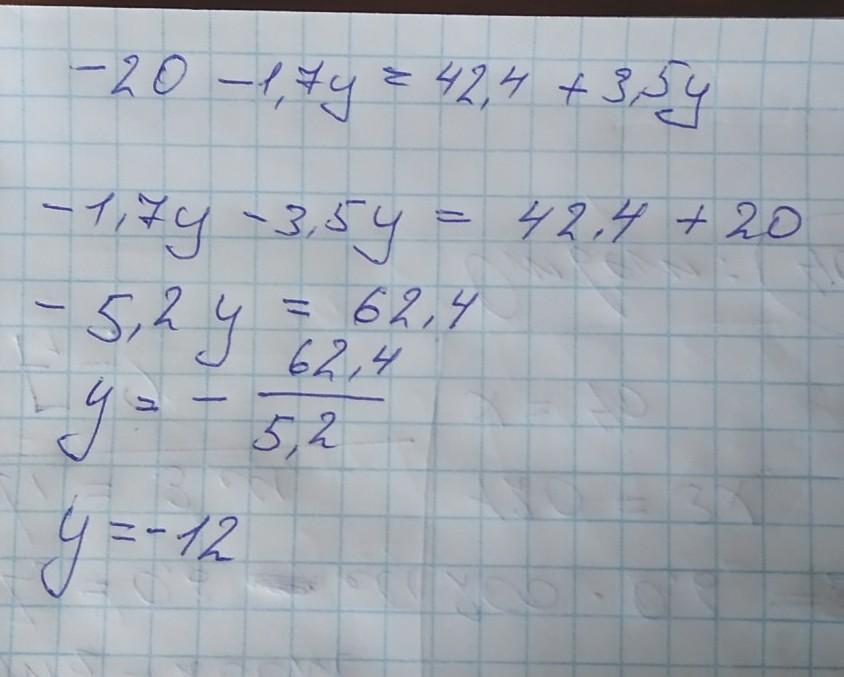 -20 -1,7y = 42,4 + 3,5y
-1,7y -3,5y = 42.4 + 20
- 5,2 y = 62,4
y = - 62,4 / 5,2
y = -12